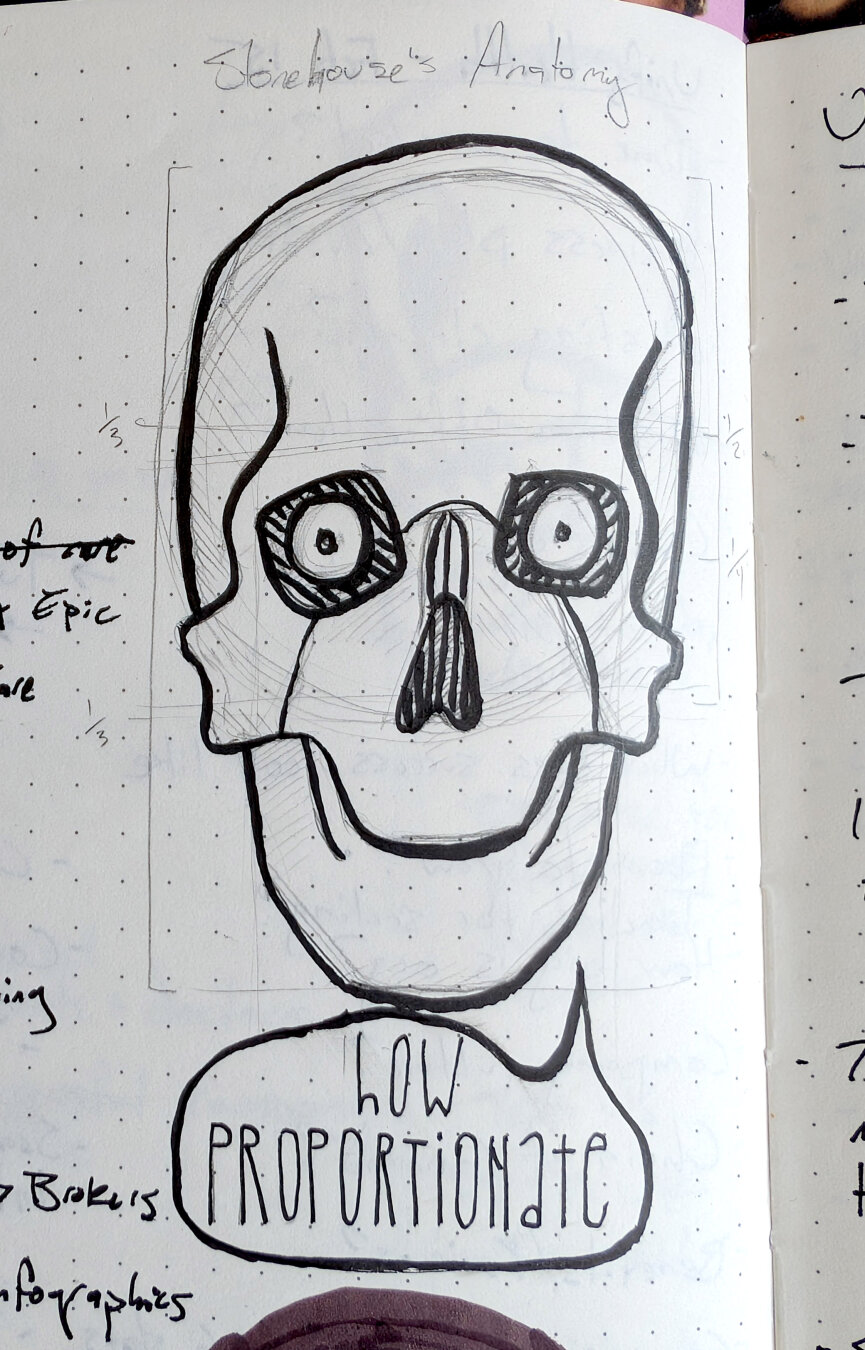 Stonehouse's Anatomy
1/3
1/2
of art
Epic
1/4
1/3
ing
HOW
PROPORTIONate
Brokers
nfographics